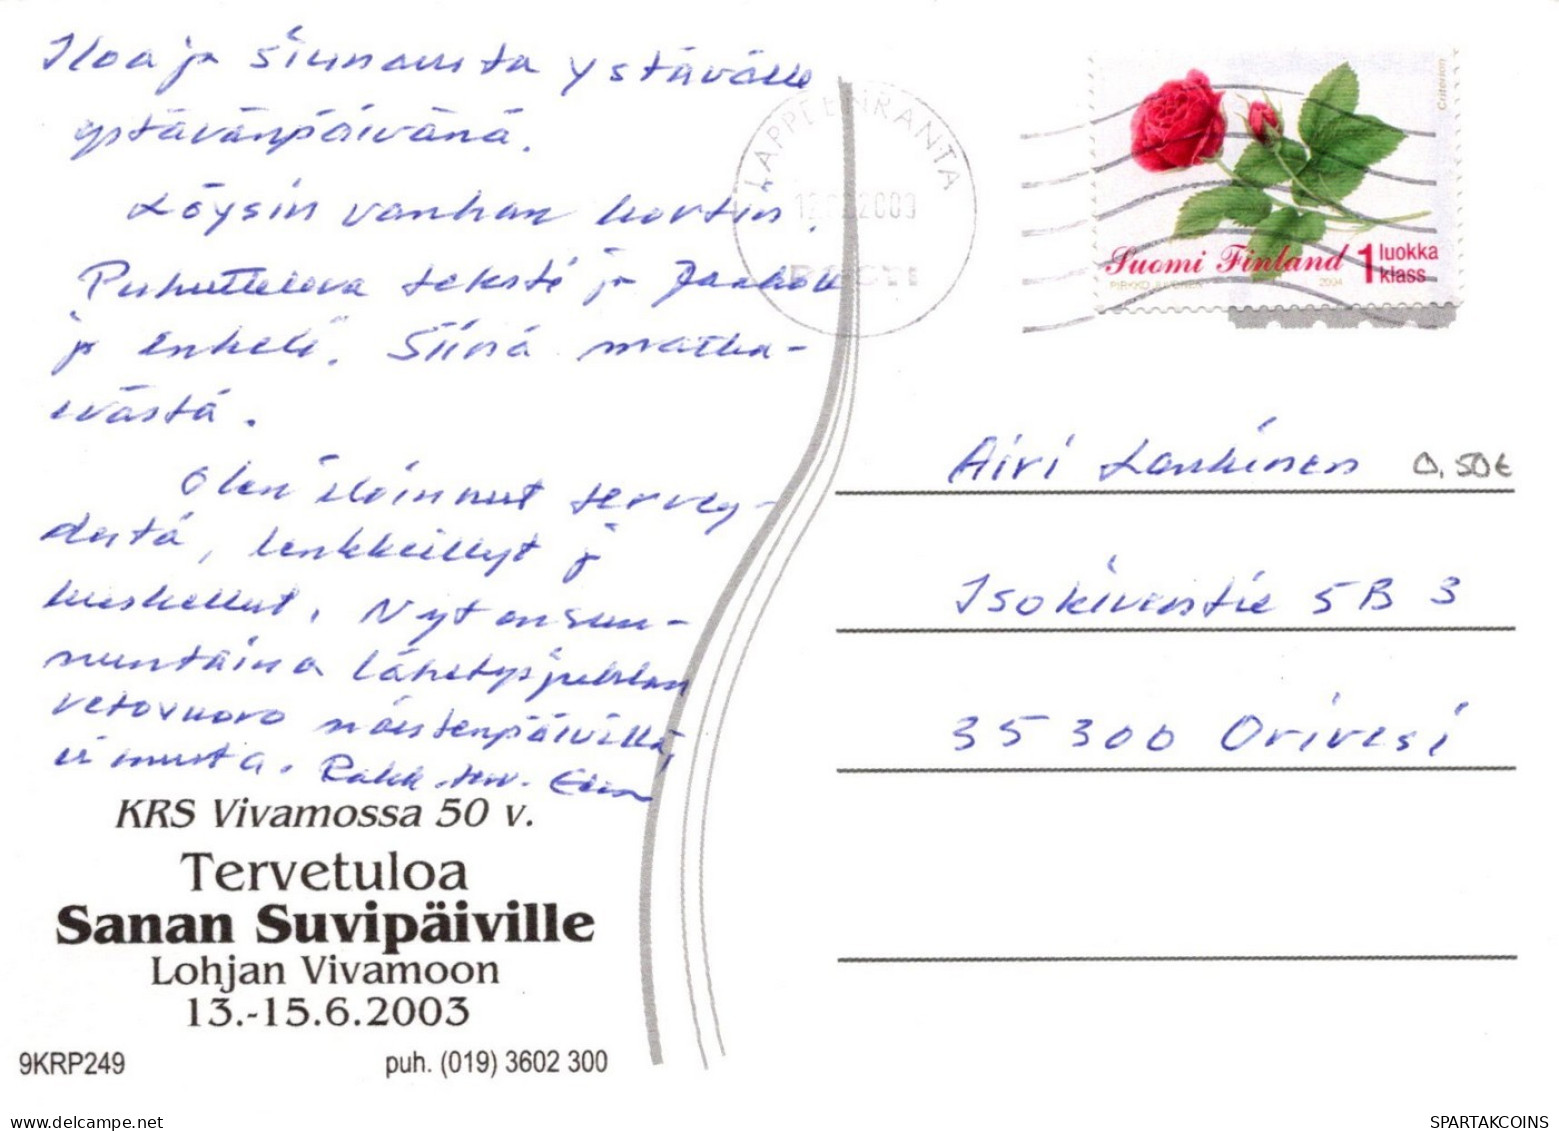 Iloa ja siunausta ystävälle
ystävänpäivänä.
Löysin vanhan kortin.
Puhutteleva teksti ja Jaakob
ja enkeli. Siinä matka-
evästä.
Olen iloinnut tervey-
destä, lenkkeillyt ja
hiihtellut. Nyt on sun-
nuntaina lähetysjuhlan
vetovuoro naistenpäivillä,
ei muuta. Rakk. terv.
KRS Vivamossa 50 v.
Tervetuloa
Sanan Suvipäiville
Lohjan Vivamoon
13.-15.6.2003
9KRP249
puh. (019) 3602 300
LAPPEENRANTA
Criterion
Suomi Finland 1 luokka
klass
2004
Airi Lankinen
0,50€
Isokiventie 5 B 3
35300 Orivesi
SPARTAKCOINS